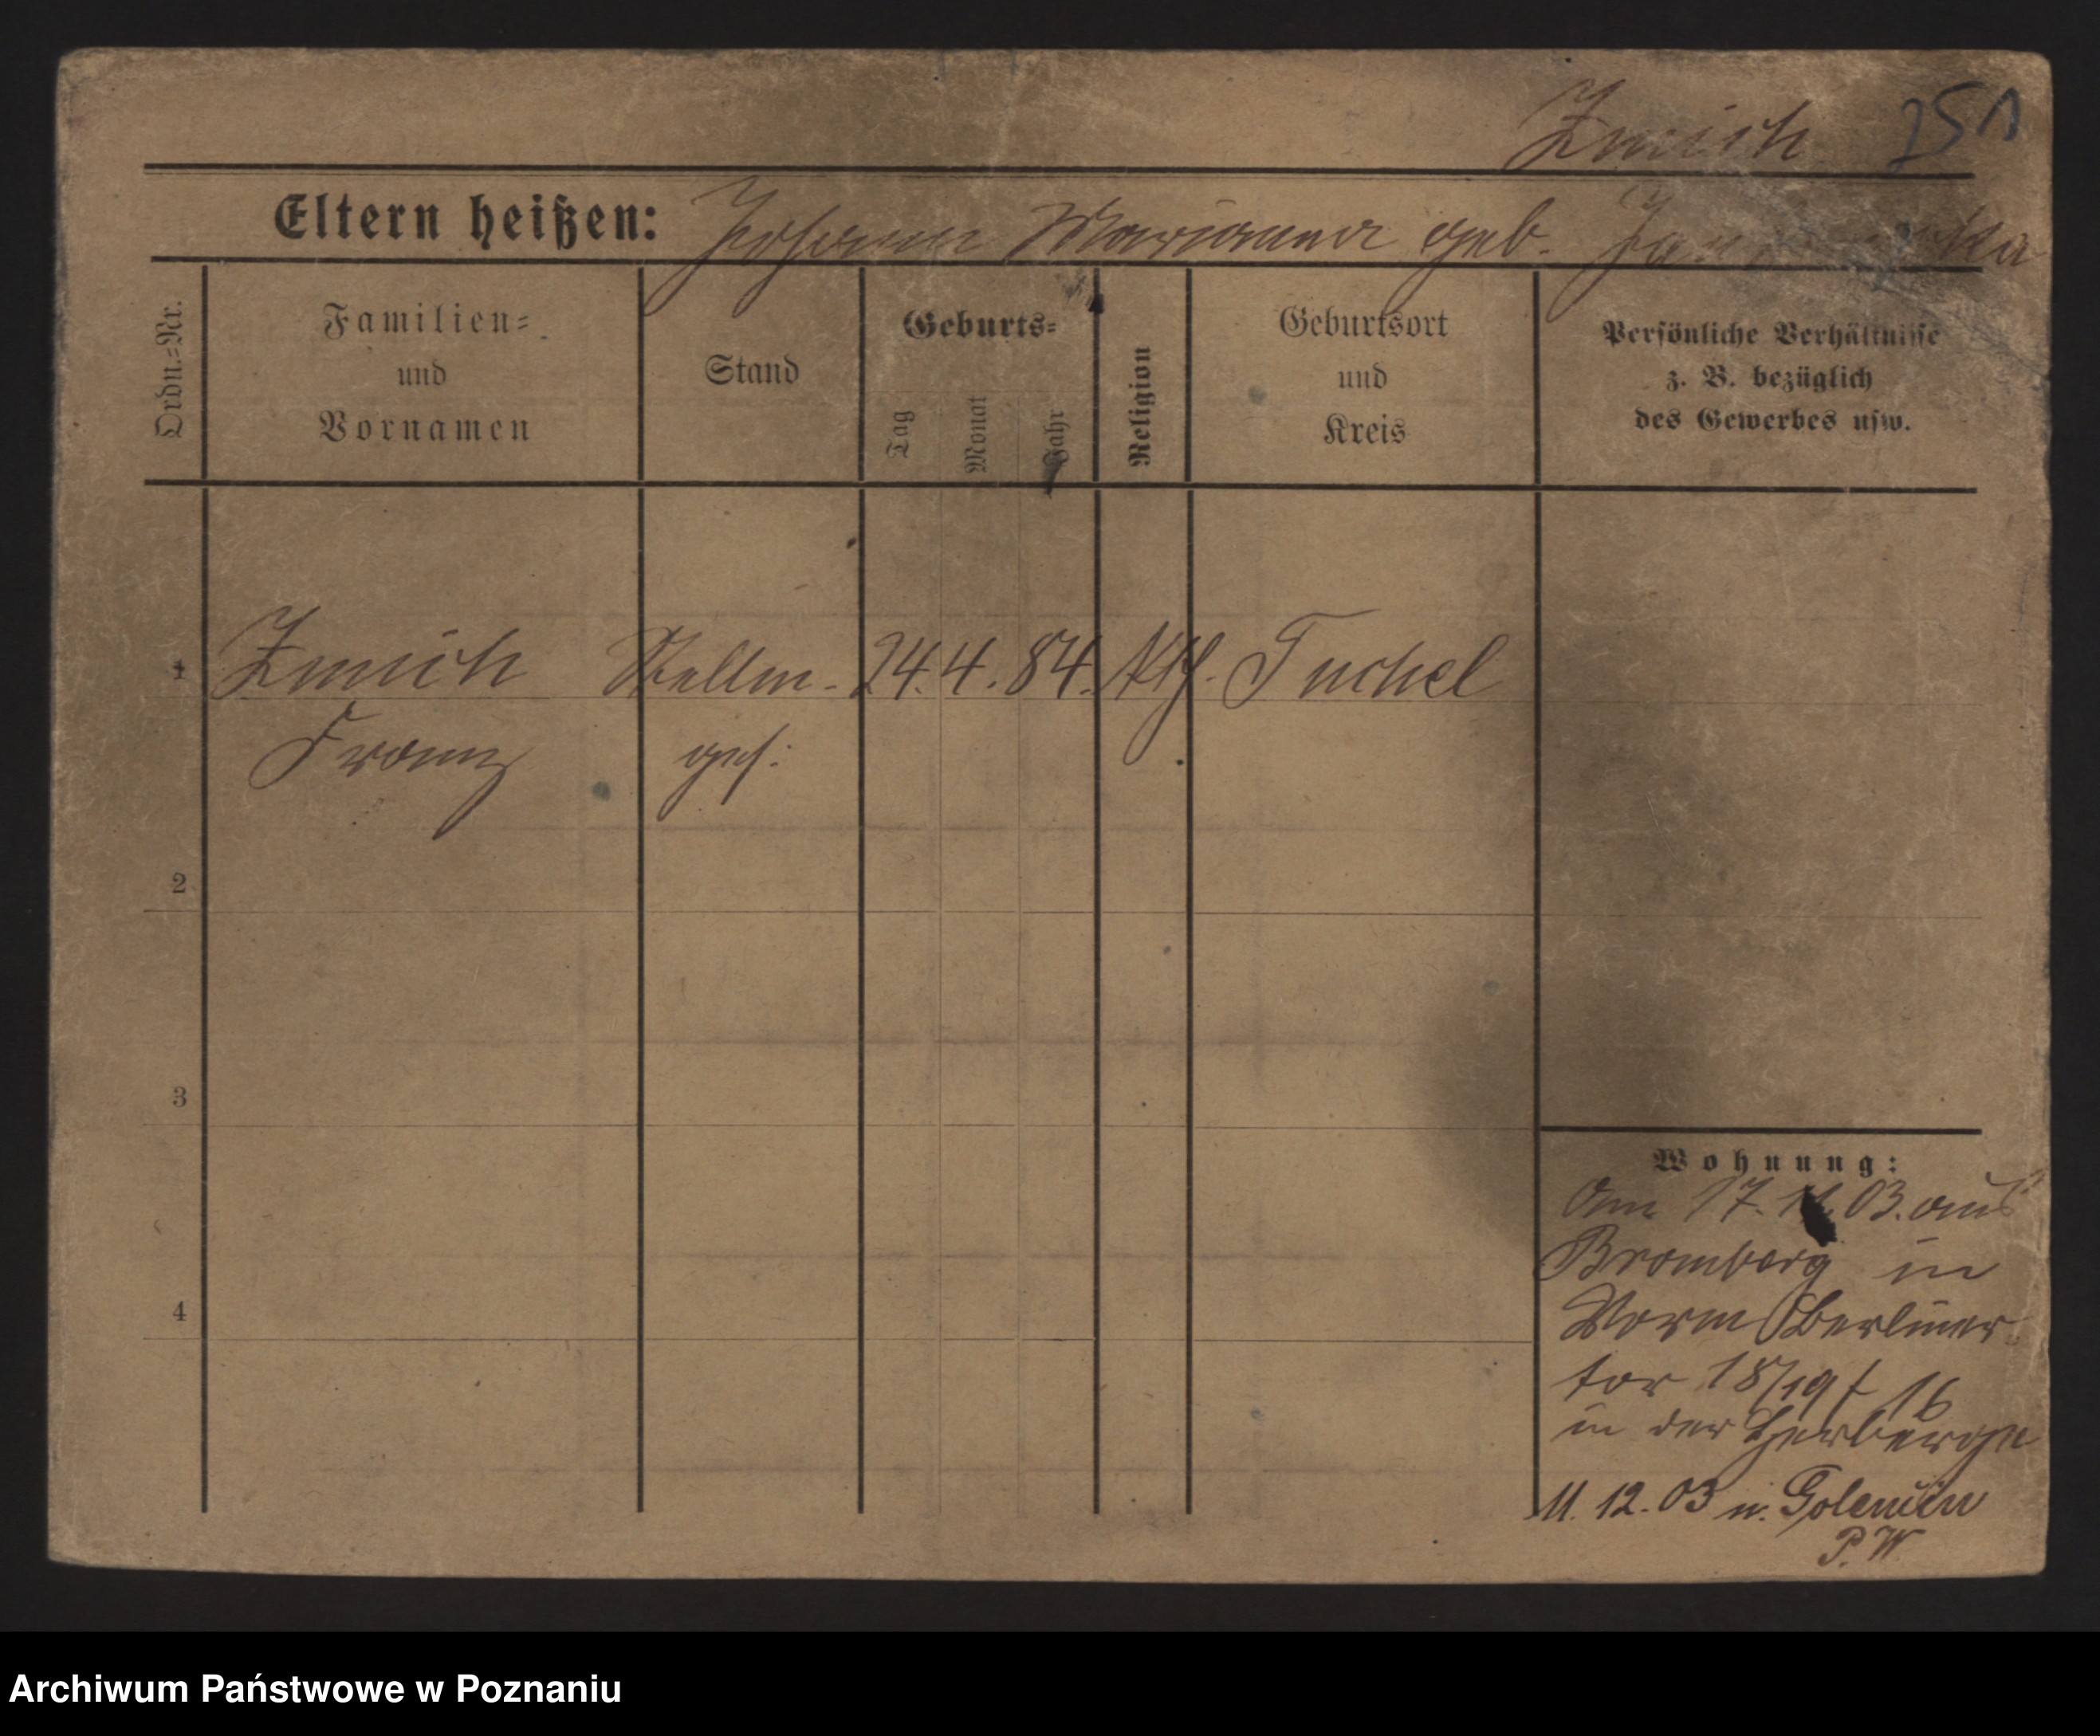 Zmich 251
Eltern heißen: Johann Marianna geb.
Ordn.=Nr.
Familien=
und
Vornamen
Stand
Geburts=
Tag
Monat
Jahr
Religion
Geburtsort
und
Kreis
Persönliche Verhältnisse
z. B. bezüglich
des Gewerbes usw.
1 Zmich Stellm. 24. 4. 84. Kth. Tuchel
Franz ges:
2
3
4
Wohnung:
Am 17. 11. 03. aus
Bromberg in
Berliner
tor 18/19 f 16
in der Herberge
11. 12. 03 n.
P. W.
Archiwum Państwowe w Poznaniu